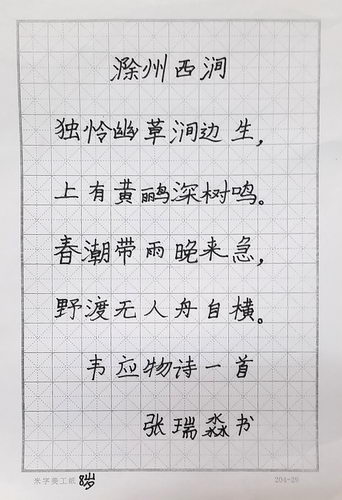 滁州西涧
独怜幽草涧边生,
上有黄鹂深树鸣。
春潮带雨晚来急,
野渡无人舟自横。
韦应物诗一首
张瑞淼书
米字美工纸 8岁 204-20